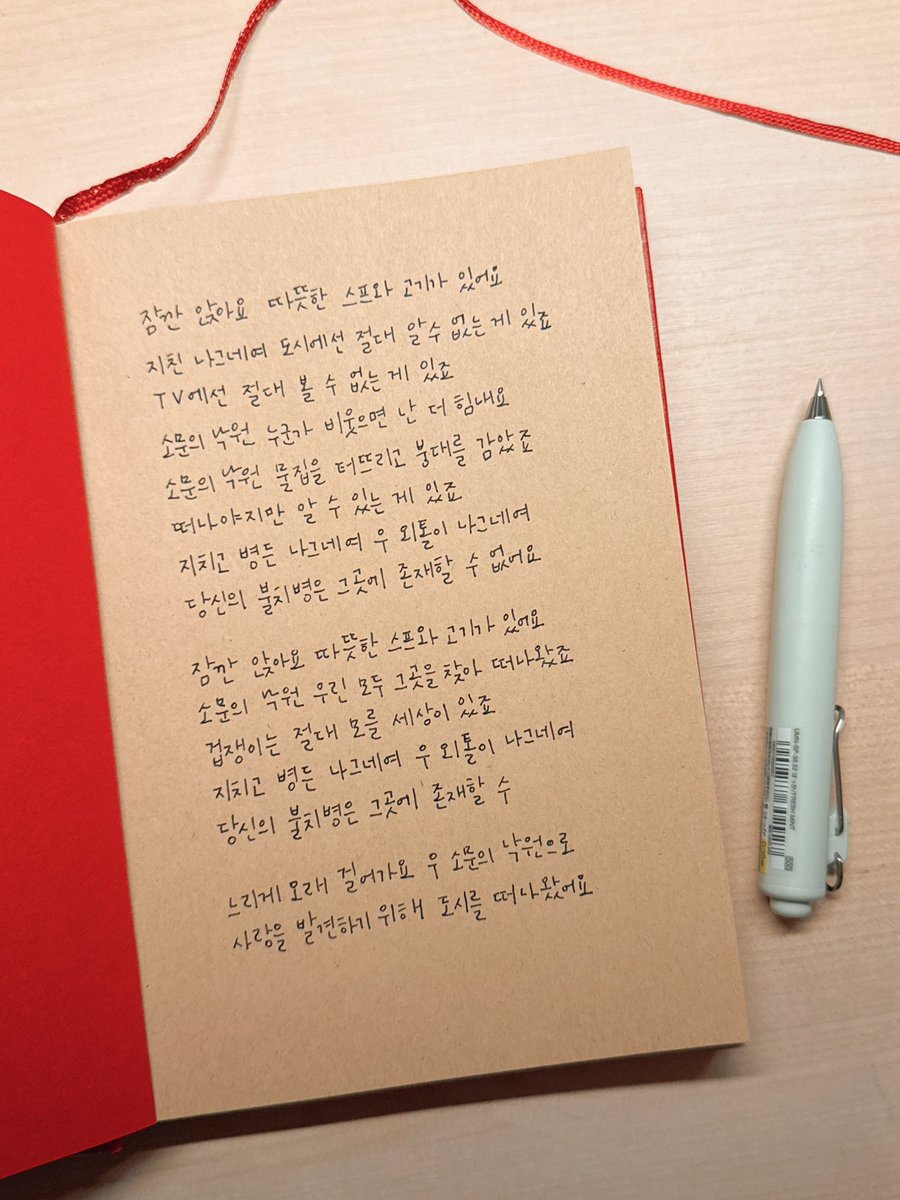 잠깐 앉아요 따뜻한 스프와 고기가 있어요
지친 나그네여 도시에선 절대 알 수 없는 게 있죠
TV에선 절대 볼 수 없는 게 있죠
소문의 낙원 누군가 비웃으면 난 더 힘내요
소문의 낙원 물집을 터뜨리고 붕대를 감았죠
떠나야지만 알 수 있는 게 있죠
지치고 병든 나그네여 우 외톨이 나그네여
당신의 불치병은 그곳에 존재할 수 없어요
잠깐 앉아요 따뜻한 스프와 고기가 있어요
소문의 낙원 우린 모두 그곳을 찾아 떠나왔죠
겁쟁이는 절대 모를 세상이 있죠
지치고 병든 나그네여 우 외톨이 나그네여
당신의 불치병은 그곳에 존재할 수
느리게 오래 걸어가요 우 소문의 낙원으로
사랑을 발견하기 위해 도시를 떠나왔어요